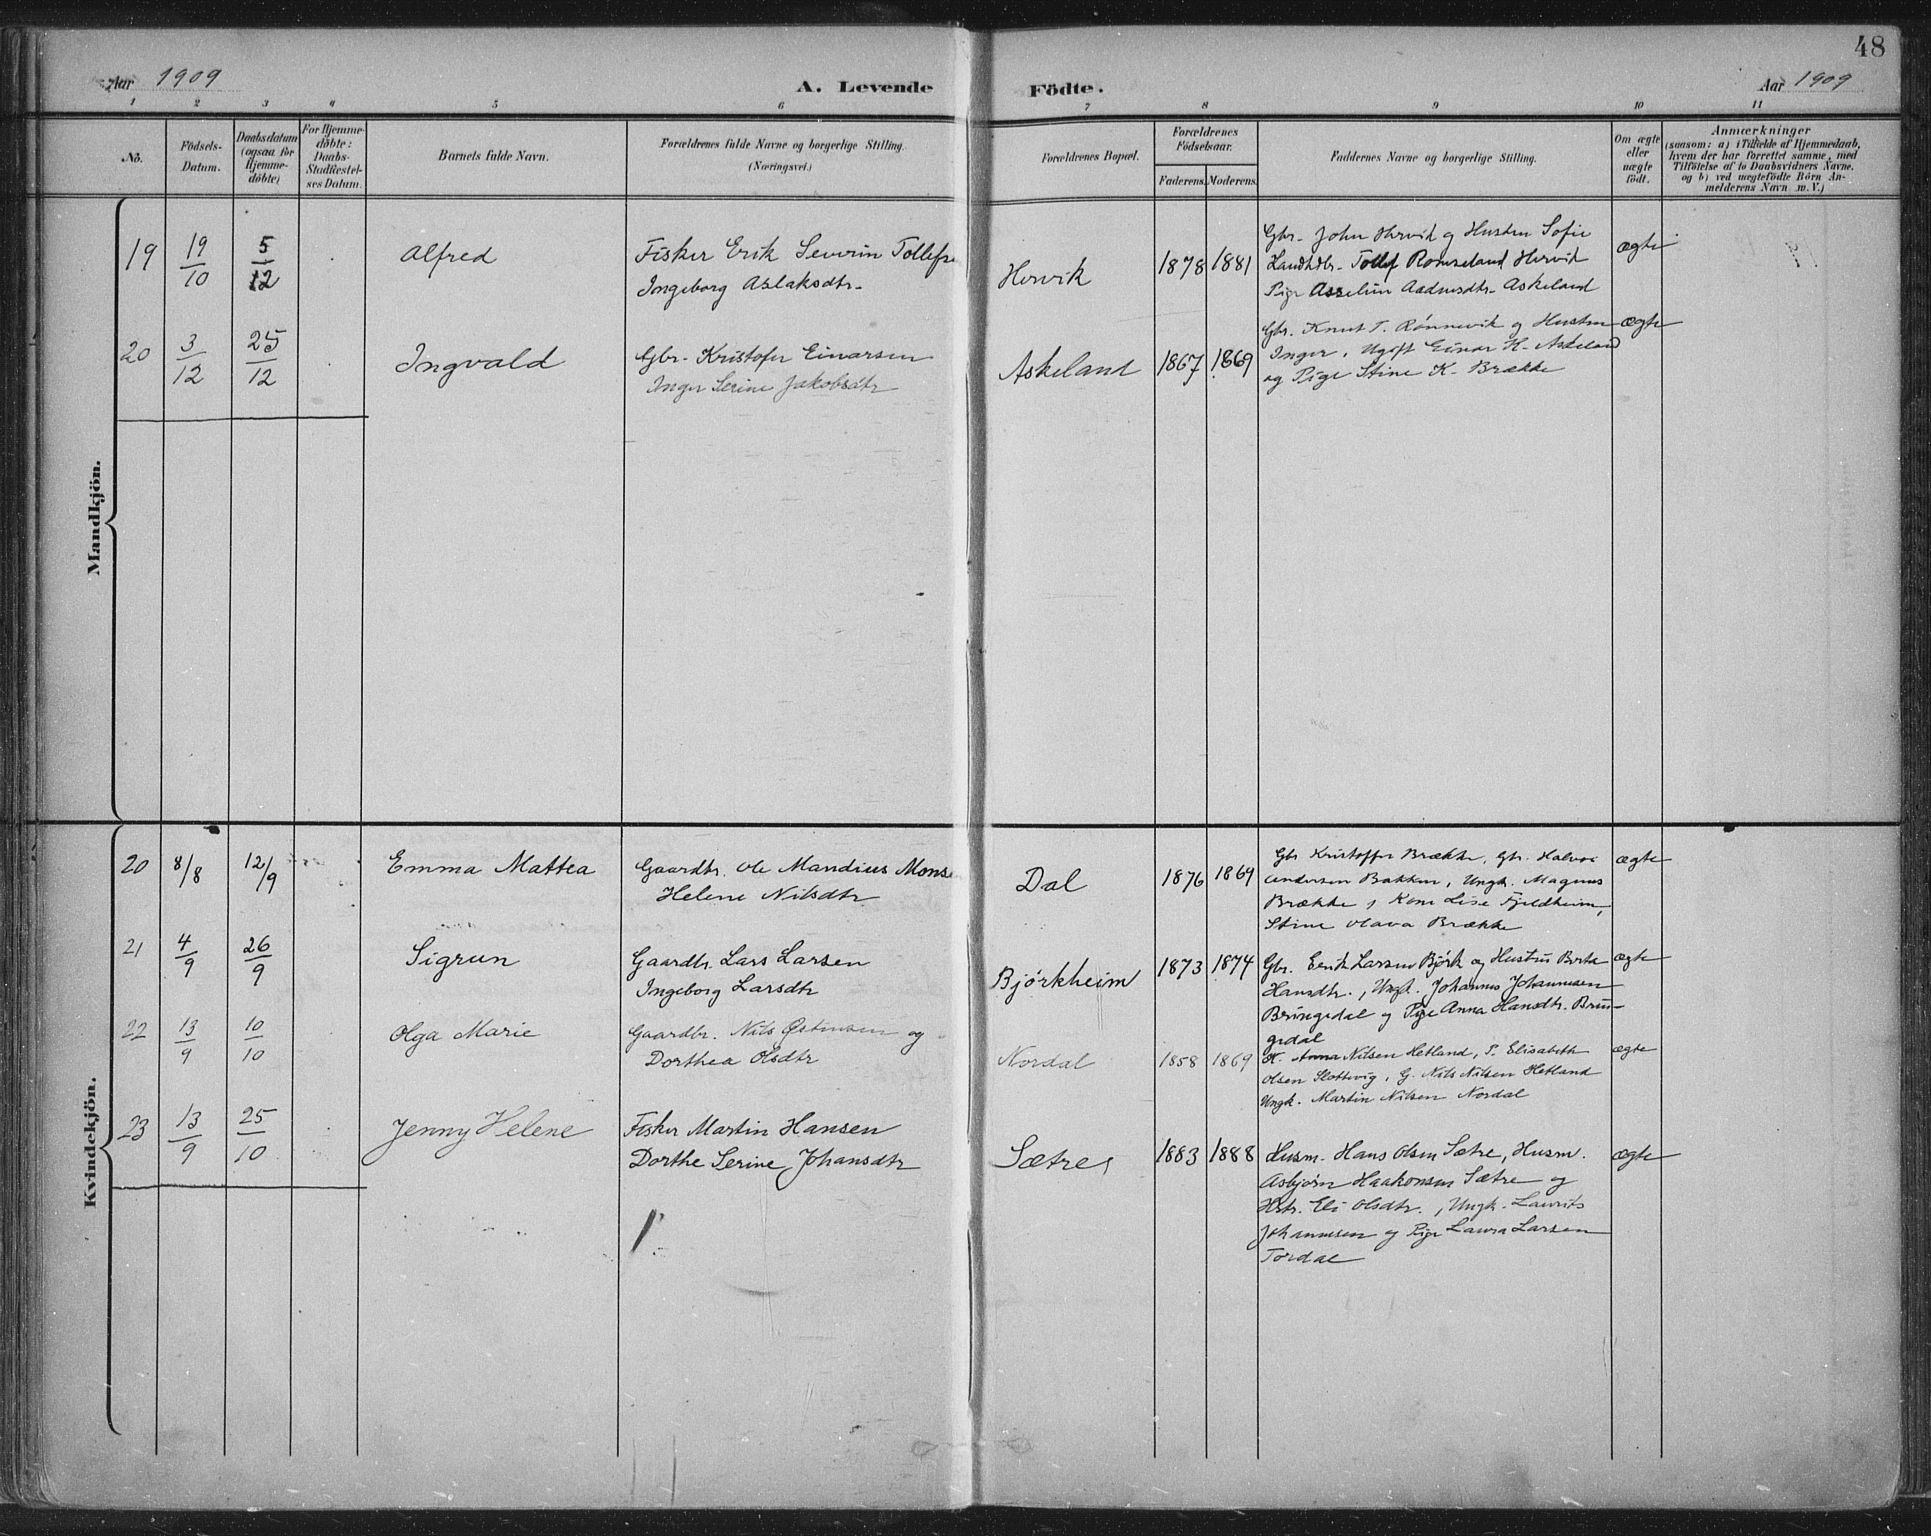 48
Aar 1909
A. Levende Födte.
Aar 1909
1 2 3 4 5 6 7 8 9 10 11
No.
Födsels-
Datum.
Daabsdatum
(ogsaa for
Hjemme-
döbte)
For Hjemme-
döbte:
Daabs-
Stadfæstel-
ses Datum.
Barnets fulde Navn.
Forældrenes fulde Navne og borgerlige Stilling.
(Næringsvei.)
Forældrenes Bopæl.
Forældrenes
Födselsaar.
Faderens. Moderens.
Faddernes Navne og borgerlige Stilling.
Om ægte
eller
uægte
födt.
Anmærkninger
(saasom: a) i Tilfælde af Hjemmedaab,
hvem der har forrettet samme, med
Tilföielse af to Daabsvidners Navne,
og b) ved uægtefödte Börn An-
melderens Navn m. V.)
Mandkjön.
19 19/10 5/12 Alfred
Fisker Erik Severin Tollefs
Ingeborg Aslaksdtr.
Hervik 1878 1881
Gbr. John Hervik og Hustru Sofie
Landhdlr. Tollef Romseland Hervik
Pige Asseline Aadnesdtr. Askeland
ægte
20 3/12 25/12 Ingvald
Gbr. Kristofer Einarsen
Inger Serine Jakobsdtr
Askeland 1867 1869
Gbr. Knut T. Rönnevik og Hustru
Inger, Ugift Einar K. Askeland
og Pige Stine K. Brække
ægte
Kvindekjön.
20 8/8 12/9 Emma Mattea
Gaardbr. Ole Mandius Mons
Helene Nilsdtr
Dal 1876 1869
Gbr Kristoffer Brække, Gbr. Halvor
Andersen Bakken, Ungk. Magnus
Brække, Kone Lise Fjeldheim,
Stine Olava Brække
ægte
21 4/9 26/9 Sigrun
Gaardbr. Lars Larsen
Ingeborg Larsdtr
Bjørkheim 1873 1874
Gbr. Erik Larsen Bjørk og Hustru Berta
Hansdtr., Ungk. Johannes Johannesen
Bringedal og Pige Anna Hansdtr. Brin-
gedal
ægte
22 13/9 10/10 Olga Marie
Gaardbr. Nils Østensen og
Dorthea Olsdtr
Nordal 1858 1869
K. Anna Nilsen Hetland, P. Elisabeth
Olsen Slottvig, G. Nils Nilsen Hetland
Ungk. Martin Nilsen Nordal
ægte
23 13/9 25/10 Jenny Helene
Fisker Martin Hansen
Dorthe Serine Johansdtr
Sætre 1883 1888
Husm. Hans Olsen Sætre, Husm.
Asbjørn Haakonsen Sætre og
Hstr. Eli Olsdtr., Ungk. Laurits
Johannesen og Pige Laura Larsen
Tordal
ægte